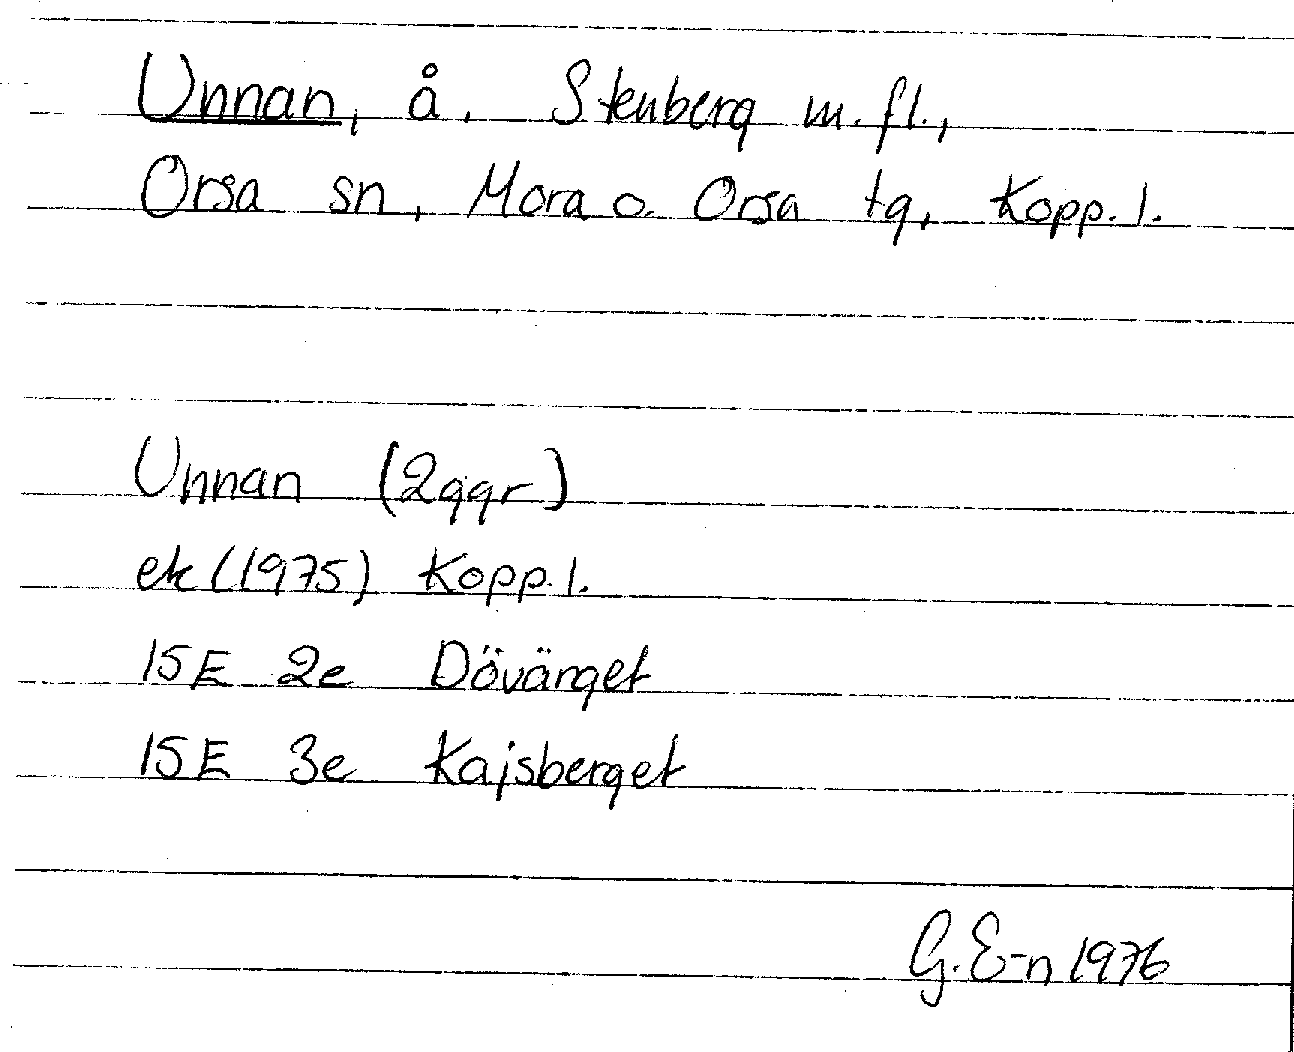 Unnan, å. Stenberg m. fl.,
Orsa sn, Mora o. Orsa tg, Kopp. l.
Unnan (2ggr)
ek (1975) Kopp. l.
15E 2e Dövärget
15E 3e Kajsberget
G. E-n 1976